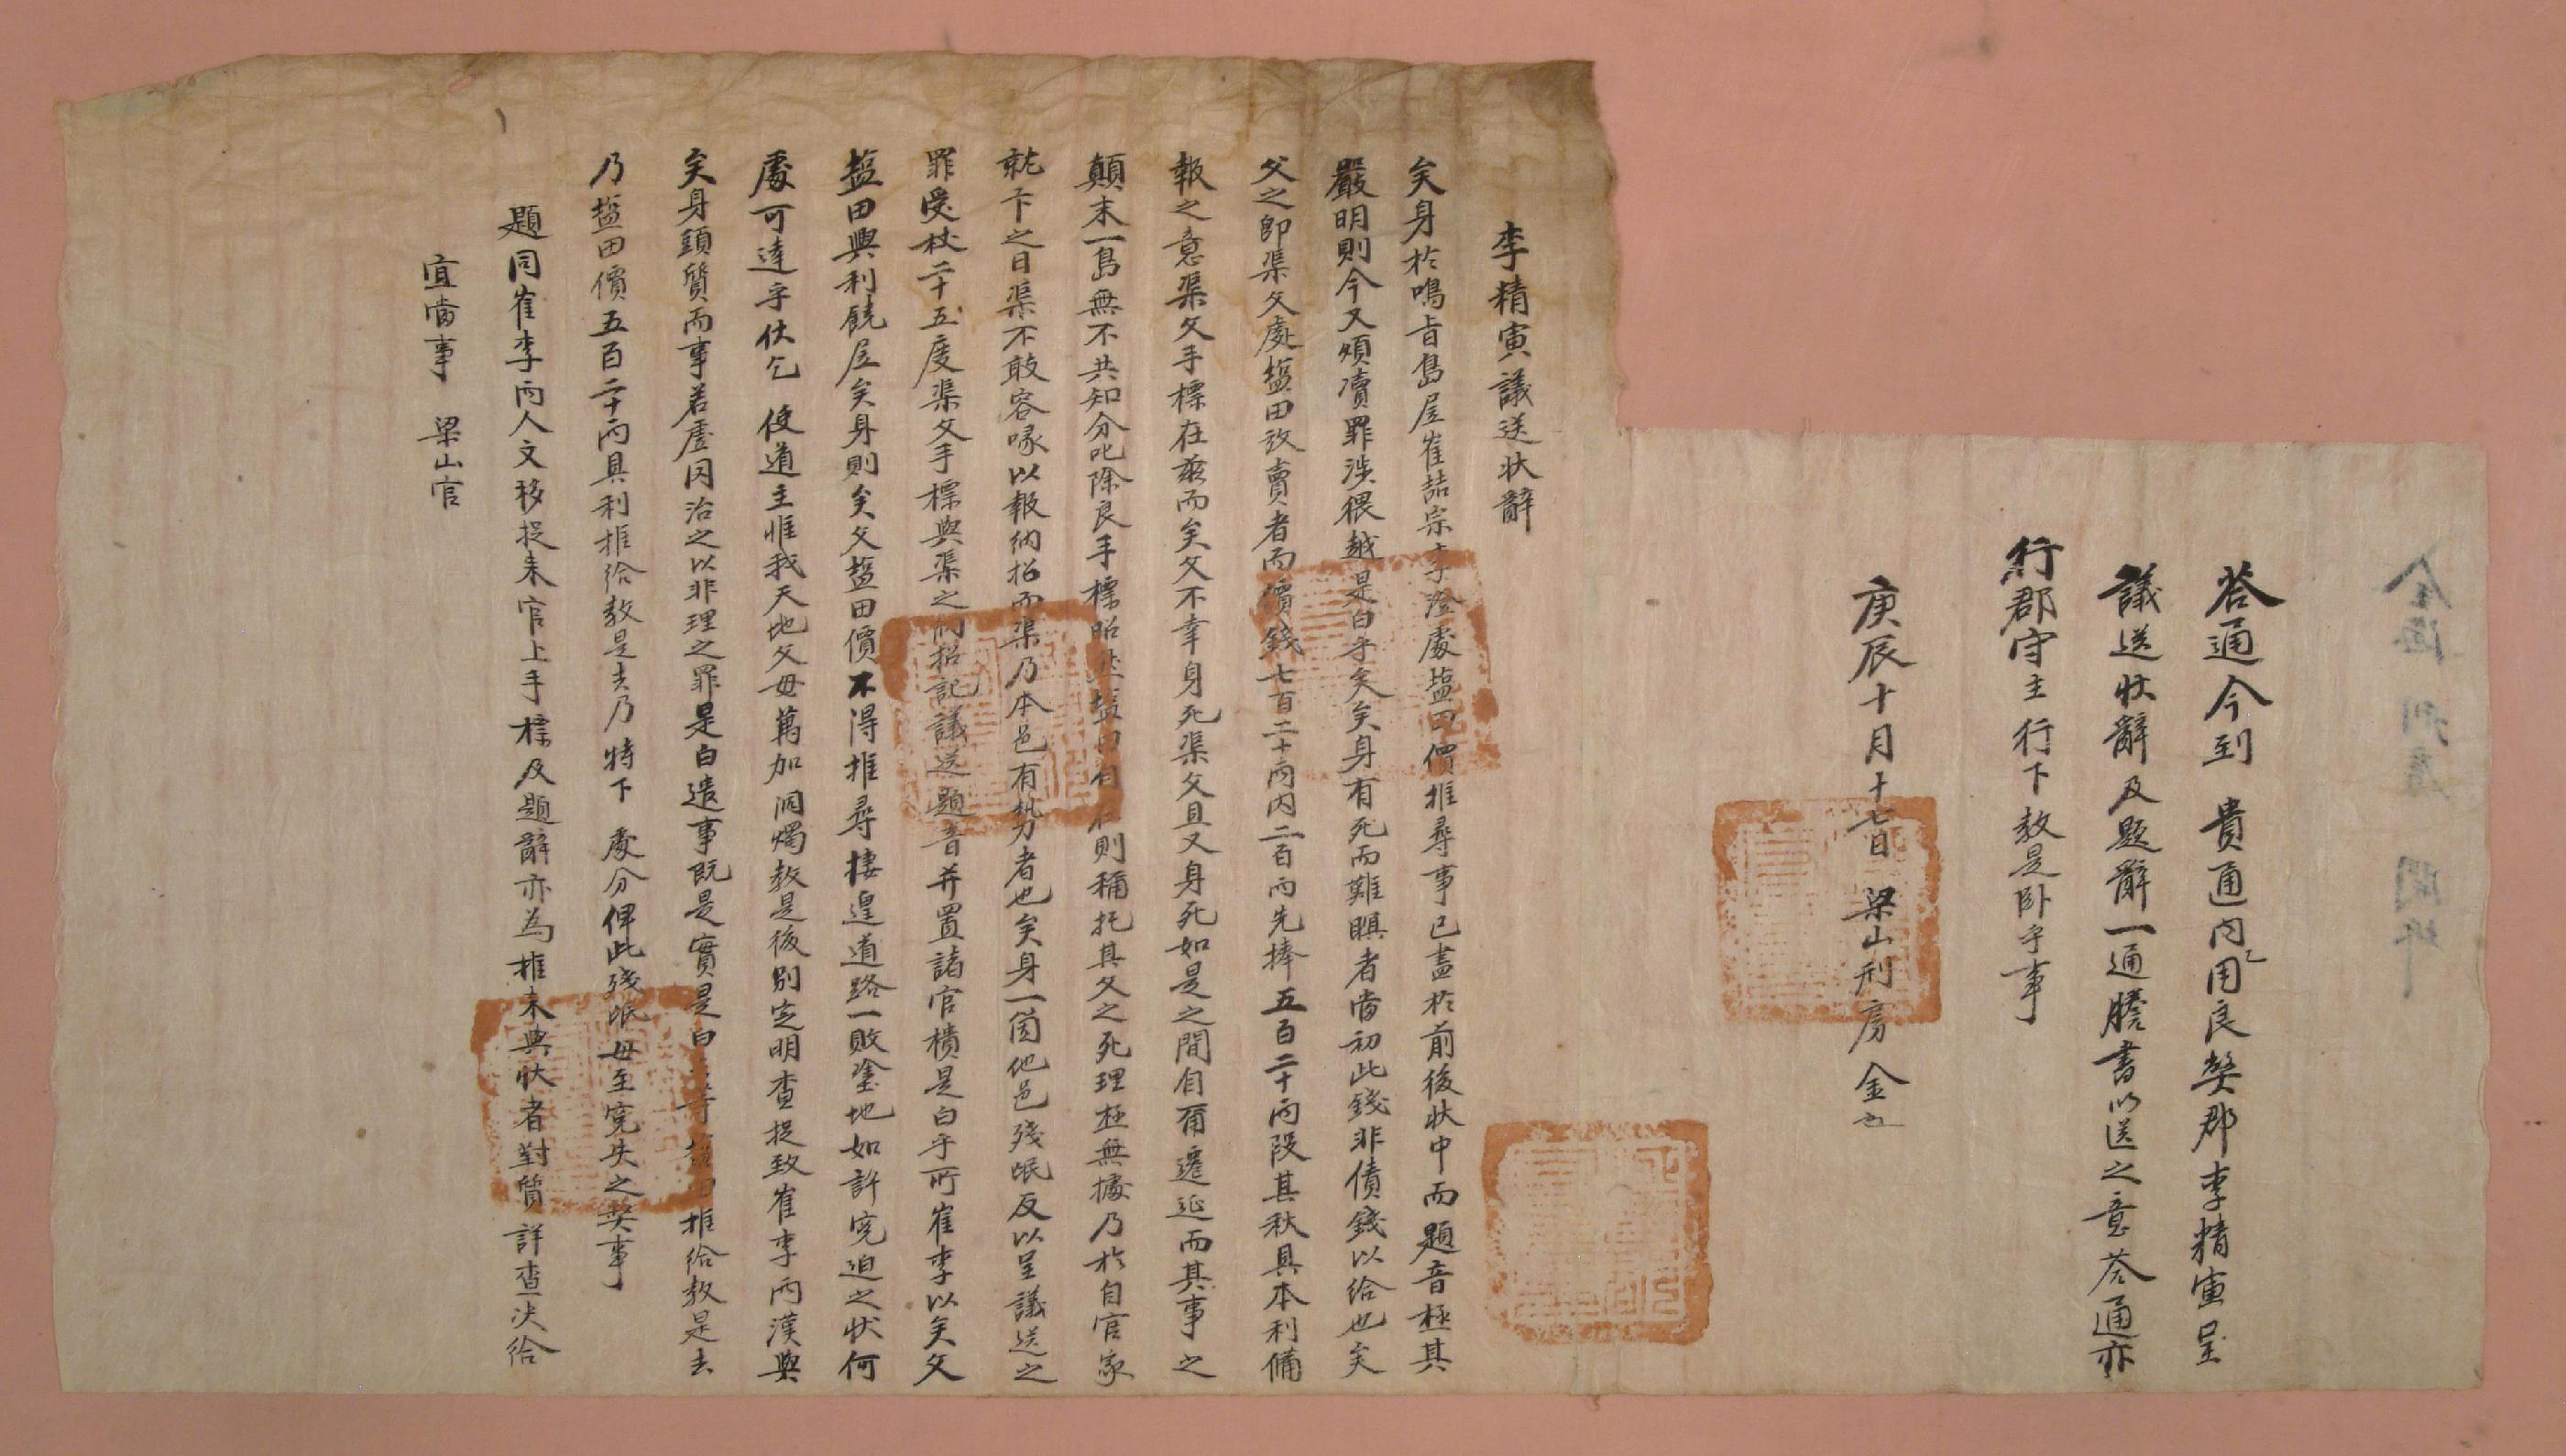 答通今到 貴通內用良獘郡李精寅呈
議送狀辭及題辭一通謄書以送之意答通亦
行郡守主行下敎是臥乎事
庚辰十月十七日 梁山刑房 金
李精寅議送狀辭
矣身於鳴旨島居崔喆宗李 處塩田價推尋事已盡於前後狀中而題音極其
嚴明則今又煩瀆罪涉猥越是白乎矣矣身有死而難瞑者當初此錢非債錢以給也矣
父之卽渠父處塩田放賣者而價錢七百二十兩內二百兩先捧五百二十兩段其秋具本利備
報之意渠父手標在玆而矣父不幸身死渠父且又身死如是之間自爾遷延而其事之
顛末一島無不共知分叱除良手標昭 塩田 則稱托其父之死理極無據乃於自官家
就卞之日渠不敢容喙以報納招而渠乃本邑有勢力者也矣身一箇他邑殘氓反以呈議送之
罪受杖二十五度渠父手標與渠之納招記議送題音并置諸官樻是白乎所崔李以矣父
塩田興利饒居矣身則矣父塩田價不得推尋捿遑道路一敗塗地如許寃迫之狀何
處可達乎伏乞 使道主惟我天地父母萬加洞燭敎是後別定明査捉致崔李兩漢與
矣身頭質而事若虛罔治之以非理之罪是白遣事旣是實是白 推給敎是去
乃塩田價五百二十兩具利推給敎是去乃 特下 處分俾此殘氓毋至寃失之獘事
題同崔李兩人文移捉來官上手標及題辭亦爲推來與狀者對質詳査決給
宜當事 梁山官